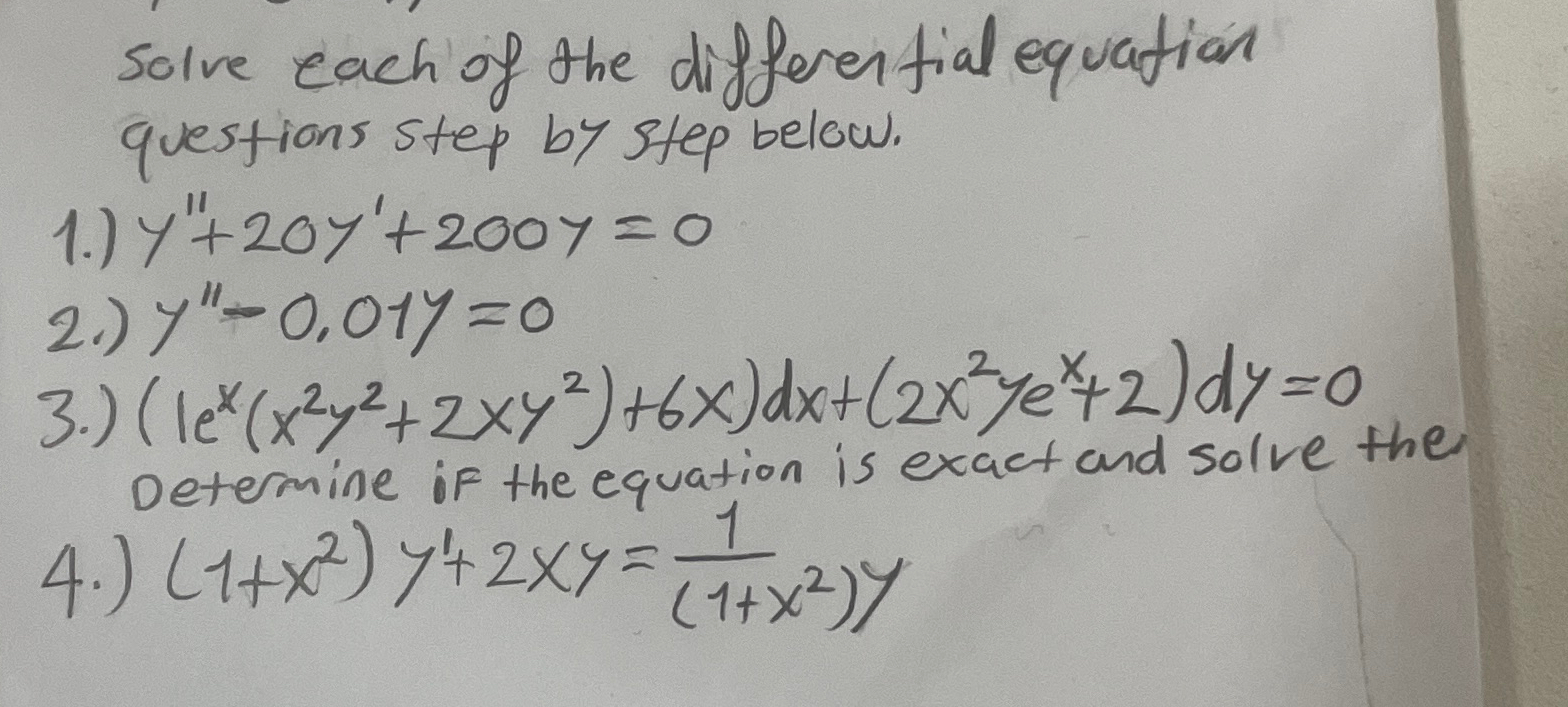 Solve each of the differential equation
questions step by step below.
1.) y''+20y'+200y=0
2.) y''-0,01y=0
3.) (1eˣ(x²y²+2xy²)+6x)dx+(2x²yeˣ+2)dy=0
Determine if the equation is exact and solve the
4.) (1+x²)y'+2xy=1/(1+x²)y